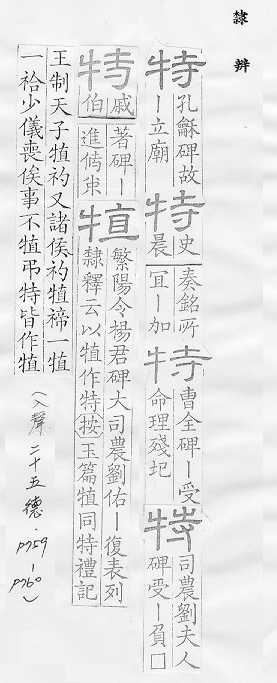 隸辨
特 孔龢碑故
ー立廟
特 史晨
奏銘所
冝ー加
特 曹全碑ー受
命理殘圮
特 司農劉夫人
碑受ー負□
特 戚伯
著碑ー
進儔朿
犆 繁陽令楊君碑大司農劉佑ー復表列
隸釋云以犆作特按玉篇犆同特禮記
王制天子犆礿又諸侯礿犆禘一犆
一祫少儀喪俟事不犆弔特皆作犆
(入聲二十五德．P759-P760)